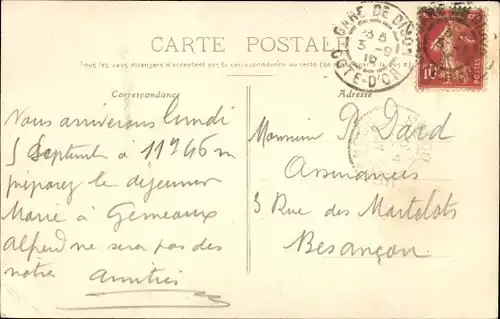 CARTE POSTALE
Tous les pays étrangers n'acceptent pas la correspondance au recto (se
Correspondance
Adresse
GARE DE DIJON
3 5
3 -9
10
COTE-D'OR
10
POSTES
Nous arriverons lundi
5 Septembre à 11h46m
préparez le dejeuner
Marie à Gemeaux
Alfred ne sera pas des
notre amitiés
Monsieur Dard
Assurances
3 Rue des Martelots
Besançon